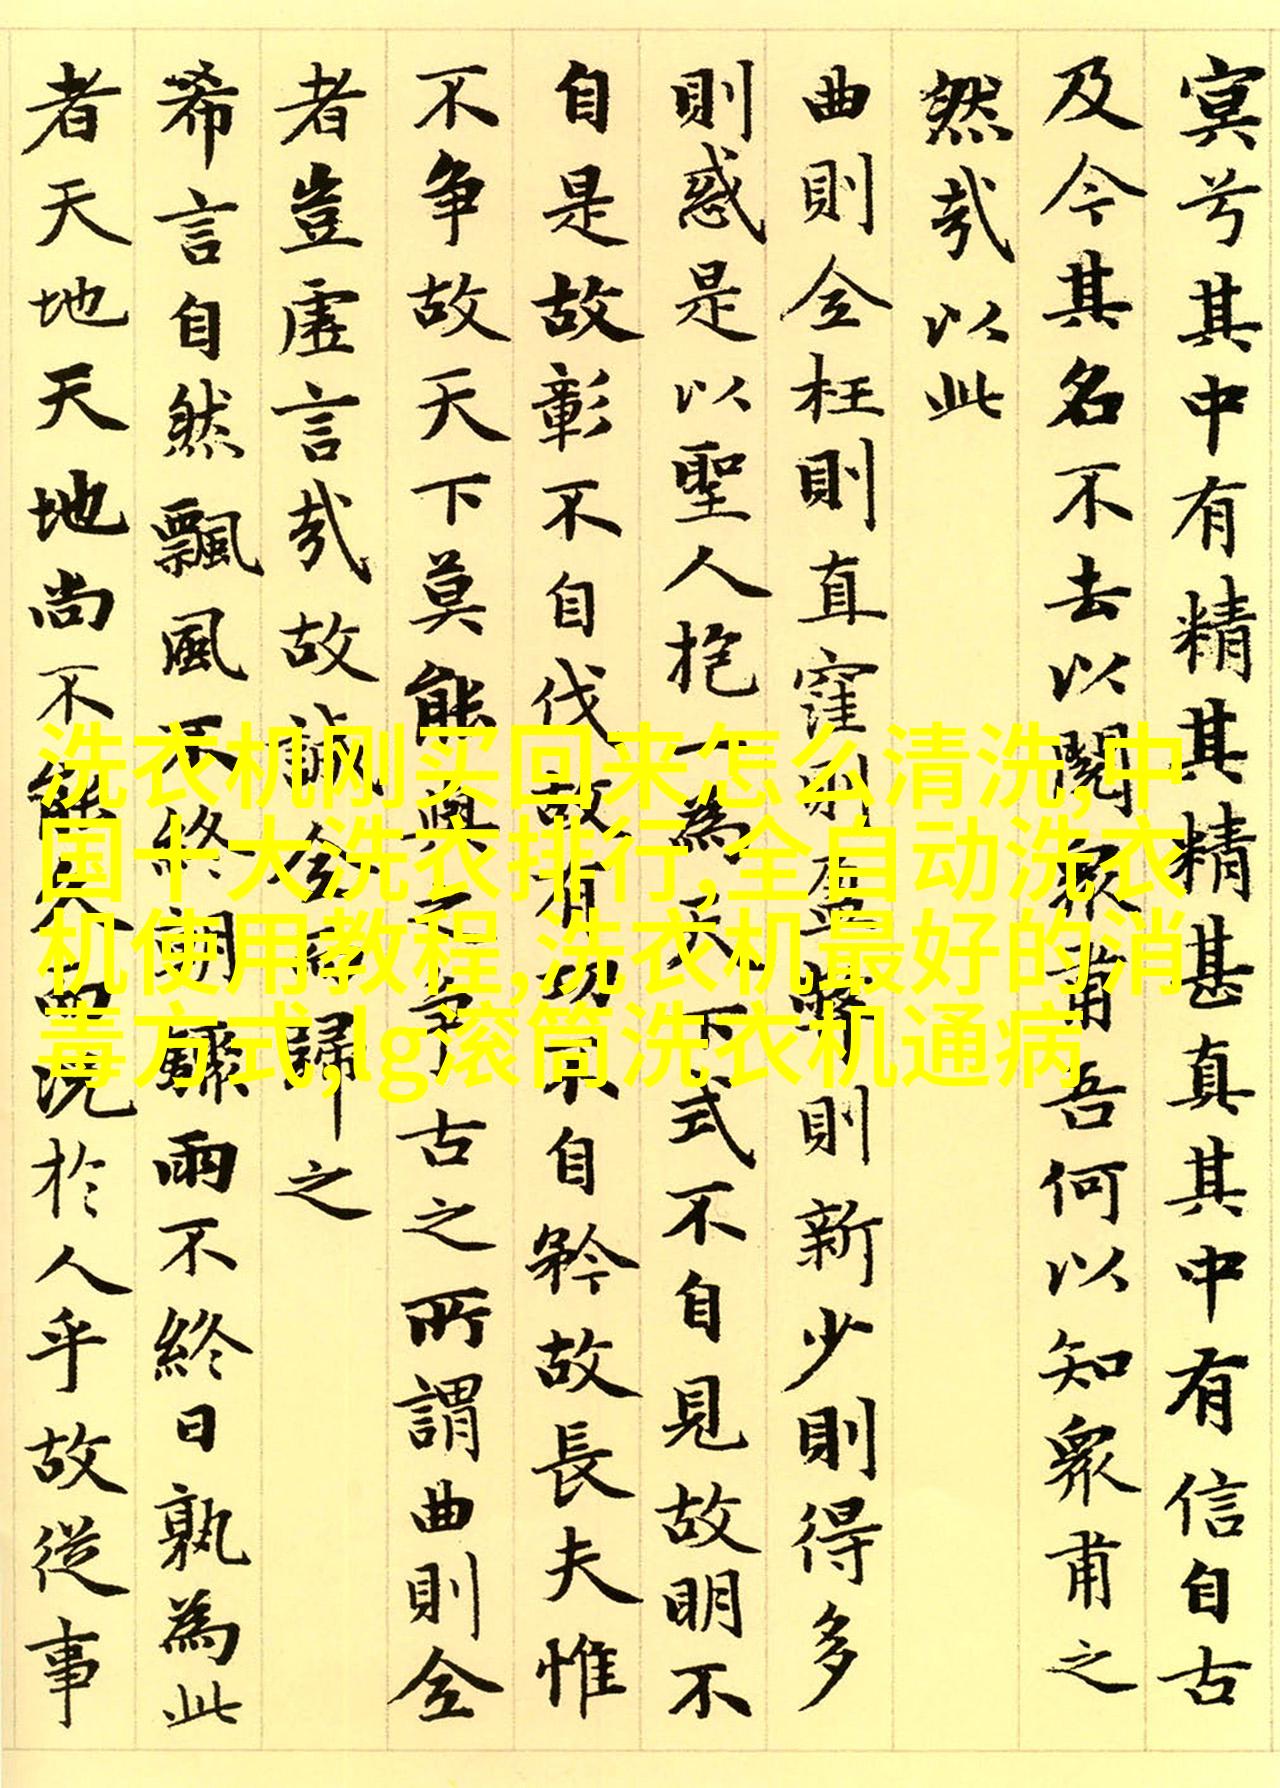 冥兮其中有精其精甚真其中有信自古
及今其名不去以閱衆甫吾何以知衆甫之
然哉以此
曲則全枉則直窪則盈弊則新少則得多
則惑是以聖人抱一為天下式不自見故明不
自是故彰不自伐故有功不自矜故長夫惟
不争故天下莫能與之争古之所謂曲則全
者豈虛言哉故誠全而歸之
希言自然飄風不終朝驟雨不終日孰為此
者天地天地尚不能久而況於人乎故從事
洗衣机刚买回来怎么清洗,中
国十大洗衣排行,全自动洗衣
机使用教程,洗衣机最好的消
毒方式,lg滚筒洗衣机通病